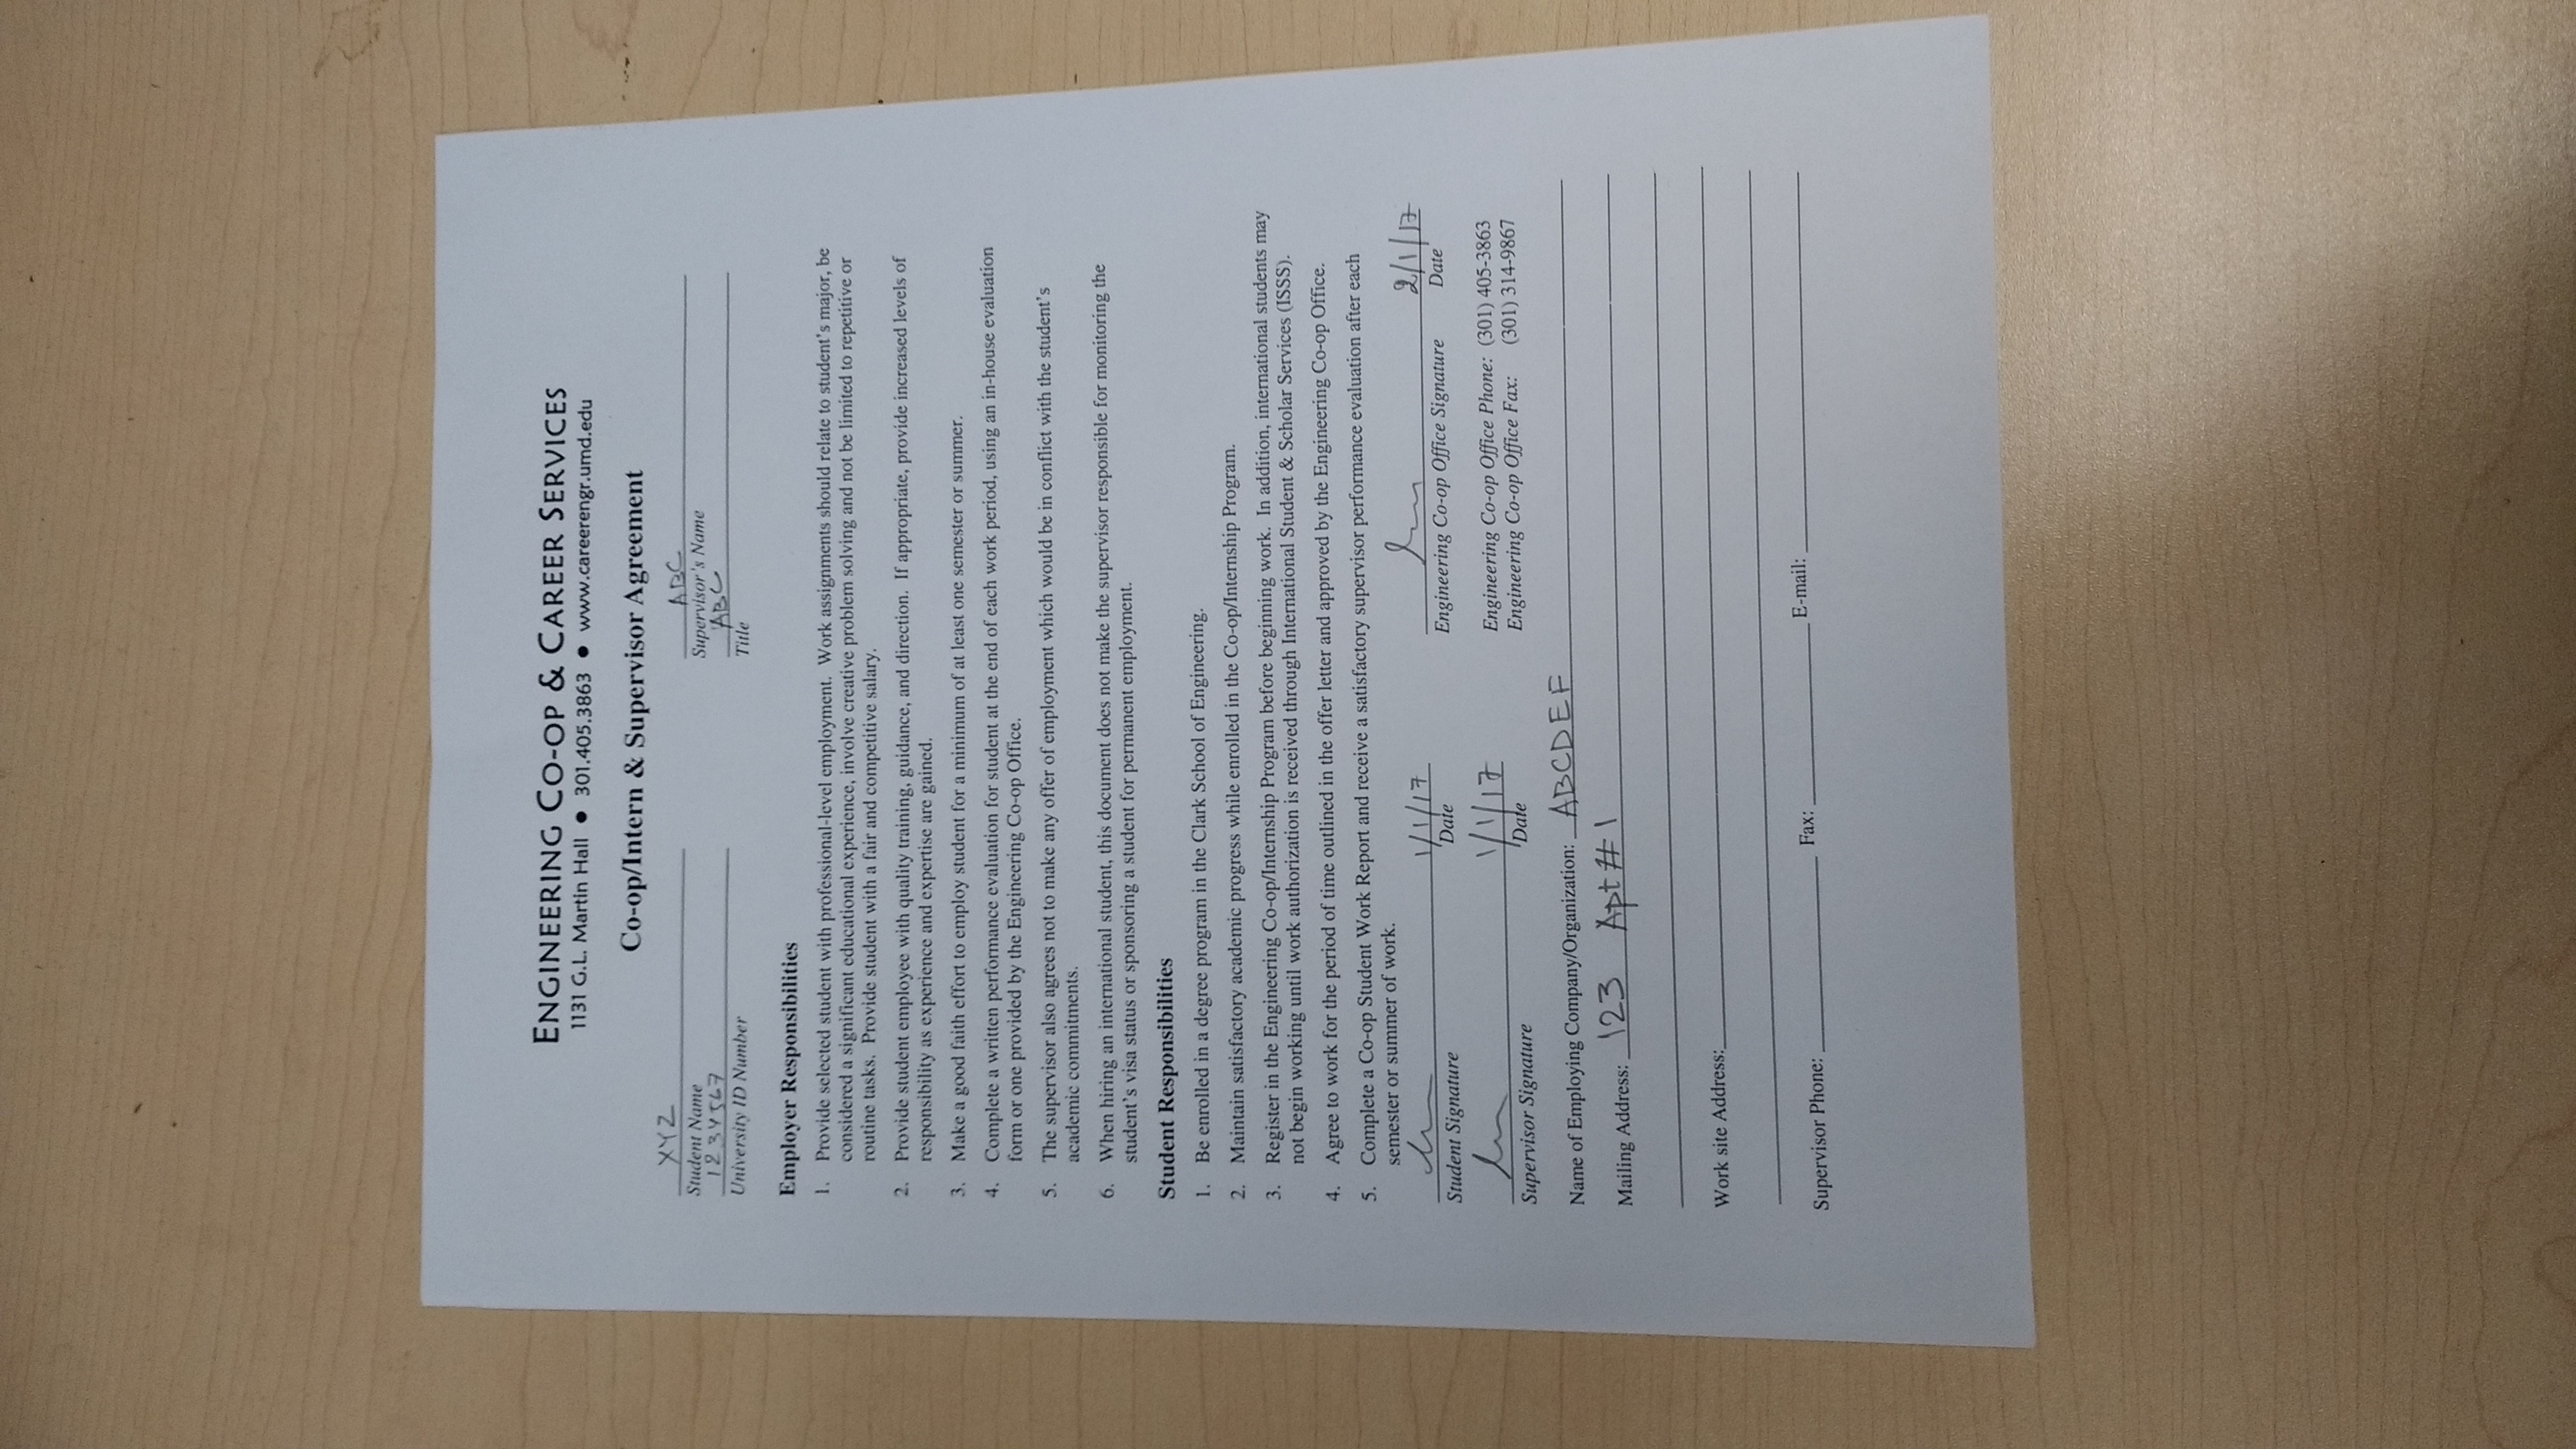 ENGINEERING CO-OP & CAREER SERVICES
1131 G.L. Martin Hall ● 301.405.3863 ● www.careerengr.umd.edu
Co-op/Intern & Supervisor Agreement
XYZ ABC
Student Name Supervisor's Name
1234567 ABC
University ID Number Title
Employer Responsibilities
1. Provide selected student with professional-level employment. Work assignments should relate to student's major, be
considered a significant educational experience, involve creative problem solving and not be limited to repetitive or
routine tasks. Provide student with a fair and competitive salary.
2. Provide student employee with quality training, guidance, and direction. If appropriate, provide increased levels of
responsibility as experience and expertise are gained.
3. Make a good faith effort to employ student for a minimum of at least one semester or summer.
4. Complete a written performance evaluation for student at the end of each work period, using an in-house evaluation
form or one provided by the Engineering Co-op Office.
5. The supervisor also agrees not to make any offer of employment which would be in conflict with the student's
academic commitments.
6. When hiring an international student, this document does not make the supervisor responsible for monitoring the
student's visa status or sponsoring a student for permanent employment.
Student Responsibilities
1. Be enrolled in a degree program in the Clark School of Engineering.
2. Maintain satisfactory academic progress while enrolled in the Co-op/Internship Program.
3. Register in the Engineering Co-op/Internship Program before beginning work. In addition, international students may
not begin working until work authorization is received through International Student & Scholar Services (ISSS).
4. Agree to work for the period of time outlined in the offer letter and approved by the Engineering Co-op Office.
5. Complete a Co-op Student Work Report and receive a satisfactory supervisor performance evaluation after each
semester or summer of work.
1/1/17 2/1/17
Student Signature Date Engineering Co-op Office Signature Date
1/1/17 Engineering Co-op Office Phone: (301) 405-3863
Supervisor Signature Date Engineering Co-op Office Fax: (301) 314-9867
Name of Employing Company/Organization: ABCDEF
Mailing Address: 123 Apt # 1
Work site Address:
Supervisor Phone: Fax: E-mail: